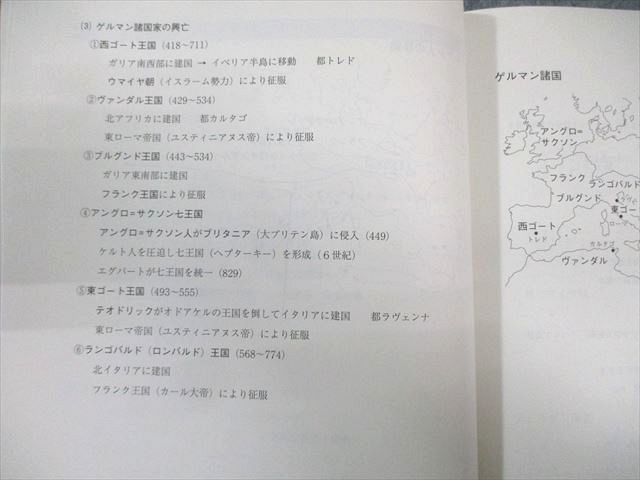 (3) ゲルマン諸国家の興亡
①西ゴート王国(418～711)
ガリア南西部に建国 → イベリア半島に移動 都トレド
ウマイヤ朝(イスラーム勢力)により征服
②ヴァンダル王国(429～534)
北アフリカに建国 都カルタゴ
東ローマ帝国(ユスティニアヌス帝)により征服
③ブルグンド王国(443～534)
ガリア東南部に建国
フランク王国により征服
④アングロ=サクソン七王国
アングロ=サクソン人がブリタニア(大ブリテン島)に侵入(449)
ケルト人を圧迫し七王国(ヘプターキー)を形成(6世紀)
エグバートが七王国を統一(829)
⑤東ゴート王国(493～555)
テオドリックがオドアケルの王国を倒してイタリアに建国 都ラヴェンナ
東ローマ帝国(ユスティニアヌス帝)により征服
⑥ランゴバルド(ロンバルド)王国(568～774)
北イタリアに建国
フランク王国(カール大帝)により征服
ゲルマン諸国
アングロ=
サクソン
フランク
ランゴバルド
ブルグンド
東ゴー
ローマ
西ゴート
トレド
カルタゴ
ヴァンダル